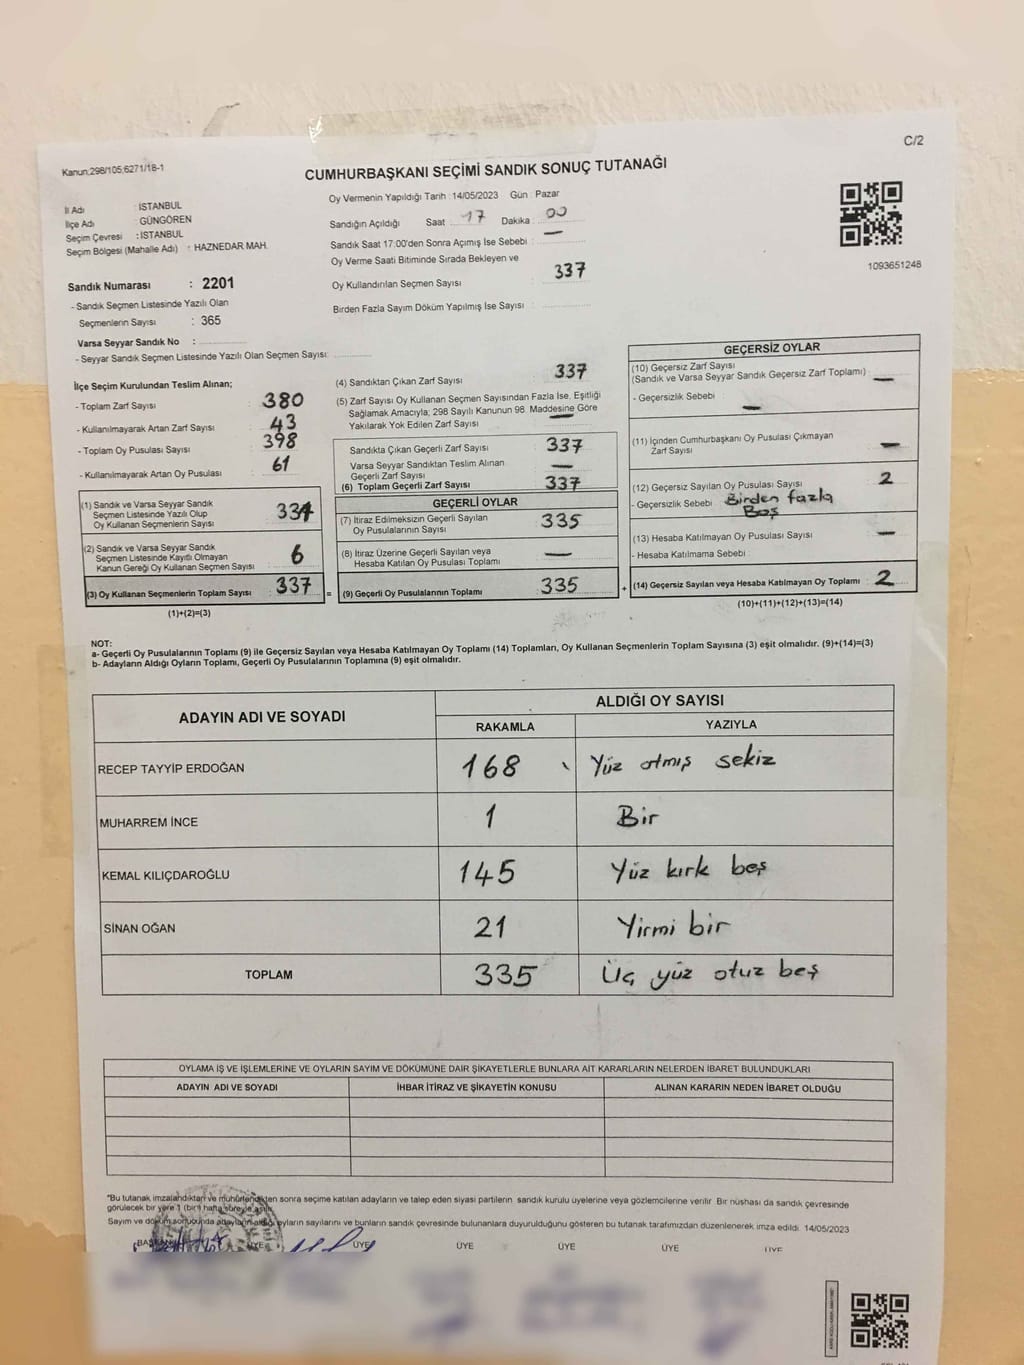 C/2
Kanun:298/105;6271/18-1
CUMHURBAŞKANI SEÇİMİ SANDIK SONUÇ TUTANAĞI
İl Adı : İSTANBUL
İlçe Adı : GÜNGÖREN
Seçim Çevresi : İSTANBUL
Seçim Bölgesi (Mahalle Adı) : HAZNEDAR MAH.
Sandık Numarası : 2201
- Sandık Seçmen Listesinde Yazılı Olan
Seçmenlerin Sayısı : 365
Varsa Seyyar Sandık No :
- Seyyar Sandık Seçmen Listesinde Yazılı Olan Seçmen Sayısı:
Oy Vermenin Yapıldığı Tarih : 14/05/2023 Gün : Pazar
Sandığın Açıldığı Saat : 17 Dakika : 00
Sandık Saat 17:00'den Sonra Açımış İse Sebebi : —
Oy Verme Saati Bitiminde Sırada Bekleyen ve
Oy Kullandırılan Seçmen Sayısı : 337
Birden Fazla Sayım Döküm Yapılmış İse Sayısı :
1093651248
İlçe Seçim Kurulundan Teslim Alınan;
- Toplam Zarf Sayısı : 380
- Kullanılmayarak Artan Zarf Sayısı : 43
- Toplam Oy Pusulası Sayısı : 398
- Kullanılmayarak Artan Oy Pusulası : 61
(1) Sandık ve Varsa Seyyar Sandık
Seçmen Listesinde Yazılı Olup
Oy Kullanan Seçmenlerin Sayısı
(2) Sandık ve Varsa Seyyar Sandık
Seçmen Listesinde Kayıtlı Olmayan
Kanun Gereği Oy Kullanan Seçmen Sayısı : 6
(3) Oy Kullanan Seçmenlerin Toplam Sayısı : 337
(1)+(2)=(3)
(4) Sandıktan Çıkan Zarf Sayısı : 337
(5) Zarf Sayısı Oy Kullanan Seçmen Sayısından Fazla İse, Eşitliği
Sağlamak Amacıyla; 298 Sayılı Kanunun 98. Maddesine Göre
Yakılarak Yok Edilen Zarf Sayısı : —
Sandıkta Çıkan Geçerli Zarf Sayısı : 337
Varsa Seyyar Sandıktan Teslim Alınan
Geçerli Zarf Sayısı : —
(6) Toplam Geçerli Zarf Sayısı : 337
GEÇERLİ OYLAR
(7) İtiraz Edilmeksizin Geçerli Sayılan
Oy Pusulalarının Sayısı : 335
(8) İtiraz Üzerine Geçerli Sayılan veya
Hesaba Katılan Oy Pusulası Toplamı : —
= (9) Geçerli Oy Pusulalarının Toplamı : 335
GEÇERSİZ OYLAR
(10) Geçersiz Zarf Sayısı
(Sandık ve Varsa Seyyar Sandık Geçersiz Zarf Toplamı) : —
- Geçersizlik Sebebi : —
(11) İçinden Cumhurbaşkanı Oy Pusulası Çıkmayan
Zarf Sayısı : —
(12) Geçersiz Sayılan Oy Pusulası Sayısı : 2
- Geçersizlik Sebebi : Birden fazla
Boş
(13) Hesaba Katılmayan Oy Pusulası Sayısı : —
- Hesaba Katılmama Sebebi :
+ (14) Geçersiz Sayılan veya Hesaba Katılmayan Oy Toplamı : 2
(10)+(11)+(12)+(13)=(14)
NOT:
a- Geçerli Oy Pusulalarının Toplamı (9) ile Geçersiz Sayılan veya Hesaba Katılmayan Oy Toplamı (14) Toplamları, Oy Kullanan Seçmenlerin Toplam Sayısına (3) eşit olmalıdır. (9)+(14)=(3)
b- Adayların Aldığı Oyların Toplamı, Geçerli Oy Pusulalarının Toplamına (9) eşit olmalıdır.
ADAYIN ADI VE SOYADI ALDIĞI OY SAYISI
RAKAMLA YAZIYLA
RECEP TAYYİP ERDOĞAN 168 Yüz atmış sekiz
MUHARREM İNCE 1 Bir
KEMAL KILIÇDAROĞLU 145 Yüz kırk beş
SİNAN OĞAN 21 Yirmi bir
TOPLAM 335 Üç yüz otuz beş
OYLAMA İŞ VE İŞLEMLERİNE VE OYLARIN SAYIM VE DÖKÜMÜNE DAİR ŞİKAYETLERLE BUNLARA AİT KARARLARIN NELERDEN İBARET BULUNDUKLARI
ADAYIN ADI VE SOYADI İHBAR İTİRAZ VE ŞİKAYETİN KONUSU ALINAN KARARIN NEDEN İBARET OLDUĞU
*Bu tutanak imzalandıktan ve mühürlendikten sonra seçime katılan adayların ve talep eden siyasi partilerin sandık kurulu üyelerine veya gözlemcilerine verilir. Bir nüshası da sandık çevresinde
görülecek bir yere 1 (bir) hafta süreyle asılır.
Sayım ve döküm sonucunda adayların aldığı oyların sayılarını ve bunların sandık çevresinde bulunanlara duyurulduğunu gösteren bu tutanak tarafımızdan düzenlenerek imza edildi. 14/05/2023
BAŞKAN ÜYE ÜYE ÜYE ÜYE ÜYE ÜYE